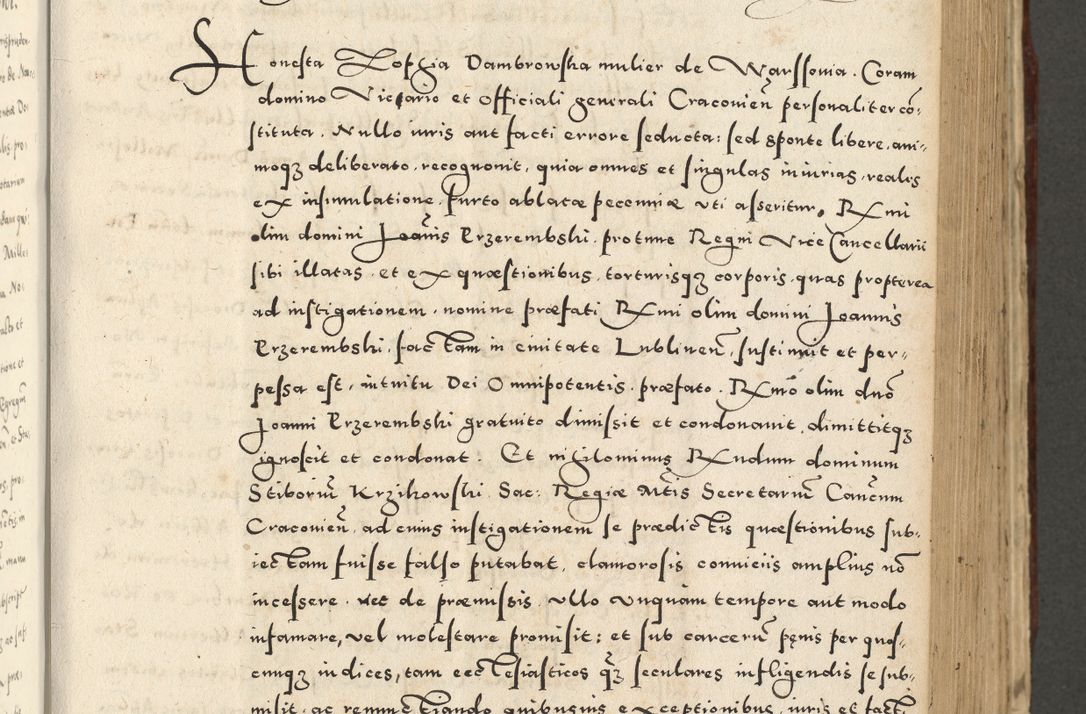 Honesta Zophia Dambrowska mulier de Warssovia. Coram
domino Vicario et Officiali generali Cracovien̄ personaliter cō-
stituta. Nullo iuris aut facti errore seducta: sed sponte libere, ani-
moqȝ deliberato, recognovit, quia omnes et singulas iniurias, reales
ex insimulatione furto ablatæ pecuniæ uti asseritur, Rmi
olim domini Joānis Przerembski, protunc Regni Vice Cancellarii
sibi illatas, et ex quæstionibus, torturisqȝ corporis, quas propterea
ad instigationem, nomine præfati Rmi olim domini Joannis
Przerembski, factam in civitate Lublinen̄, sustinuit et per-
pessa est, intuitu Dei Omnipotentis, præfato Rmō olim dnō
Joanni Przerembski gratuito dimissit et condonavit, dimittitqȝ
ignoscit et condonat. Et nihilominus Rndum dominum
Stiborium̄ Krzikowski Sac: Regiæ Mtis Secretariū Canc̄um
Cracovien̄, ad cuius instigationem se prædictis quæstionibus sub-
iectam fuisse falso putabat, clamorosis conviciis amplius nō
incessere, nec de præmissis, ullo unquam tempore aut modo
infamare, vel molestare promisit: et sub carcerū pęnis per quos-
cumqȝ iudices, tam ecclesiasticos qȝ seculares infligendis se sub-
misit, ac renunctiando quibusvis exceptionibus, iuris et facti